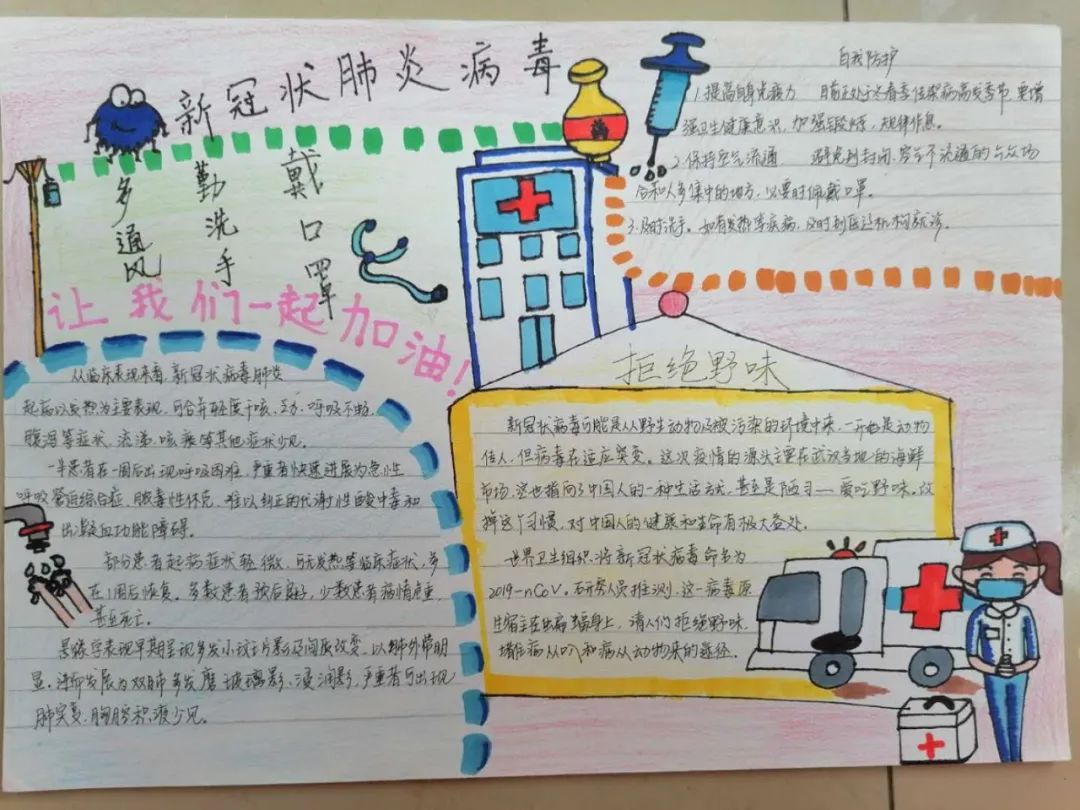 新冠状肺炎病毒
多通风
勤洗手
戴口罩
让我们一起加油!
药
自我防护
1.提高自身免疫力 目前正处于冬春季传染病高发季节,要增
强卫生健康意识,加强锻炼,规律作息。
2.保持空气流通 避免到封闭、空气不流通的公众场
合和人多集中的地方,必要时佩戴口罩。
3.及时洗手。如有发热等疾病,及时到医疗机构就诊。
从临床表现来看,新冠状病毒肺炎
起病以发热为主要表现,可合并轻度干咳、乏力、呼吸不畅、
腹泻等症状,流涕、咳痰等其他症状少见。
一半患者在一周后出现呼吸困难,严重者快速进展为急性
呼吸窘迫综合症、脓毒性休克、难以纠正的代谢性酸中毒和
出凝血功能障碍。
部分患者起病症状轻微,可无发热等临床症状,多
在1周后恢复。多数患者预后良好,少数患者病情危重,
甚至死亡。
影像学表现早期呈现多发小斑片影及间质改变,以肺外带明
显,渐渐发展为双肺多发磨玻璃影、浸润影,严重者可出现
肺实变,胸腔积液少见。
拒绝野味
新冠状病毒可能是从野生动物及被污染的环境中来,一开始是动物
传人,但病毒在适应突变。这次疫情的源头主要在武汉当地的海鲜
市场,这也指向了中国人的一种生活方式,甚至是陋习——爱吃野味。改
掉这个习惯,对中国人的健康和生命有极大益处。
世界卫生组织将新冠状病毒命名为
2019-nCoV。研究人员推测,这一病毒原
生宿主在蝙蝠身上,请人们拒绝野味,
堵住病从口入和病从动物来的途径。